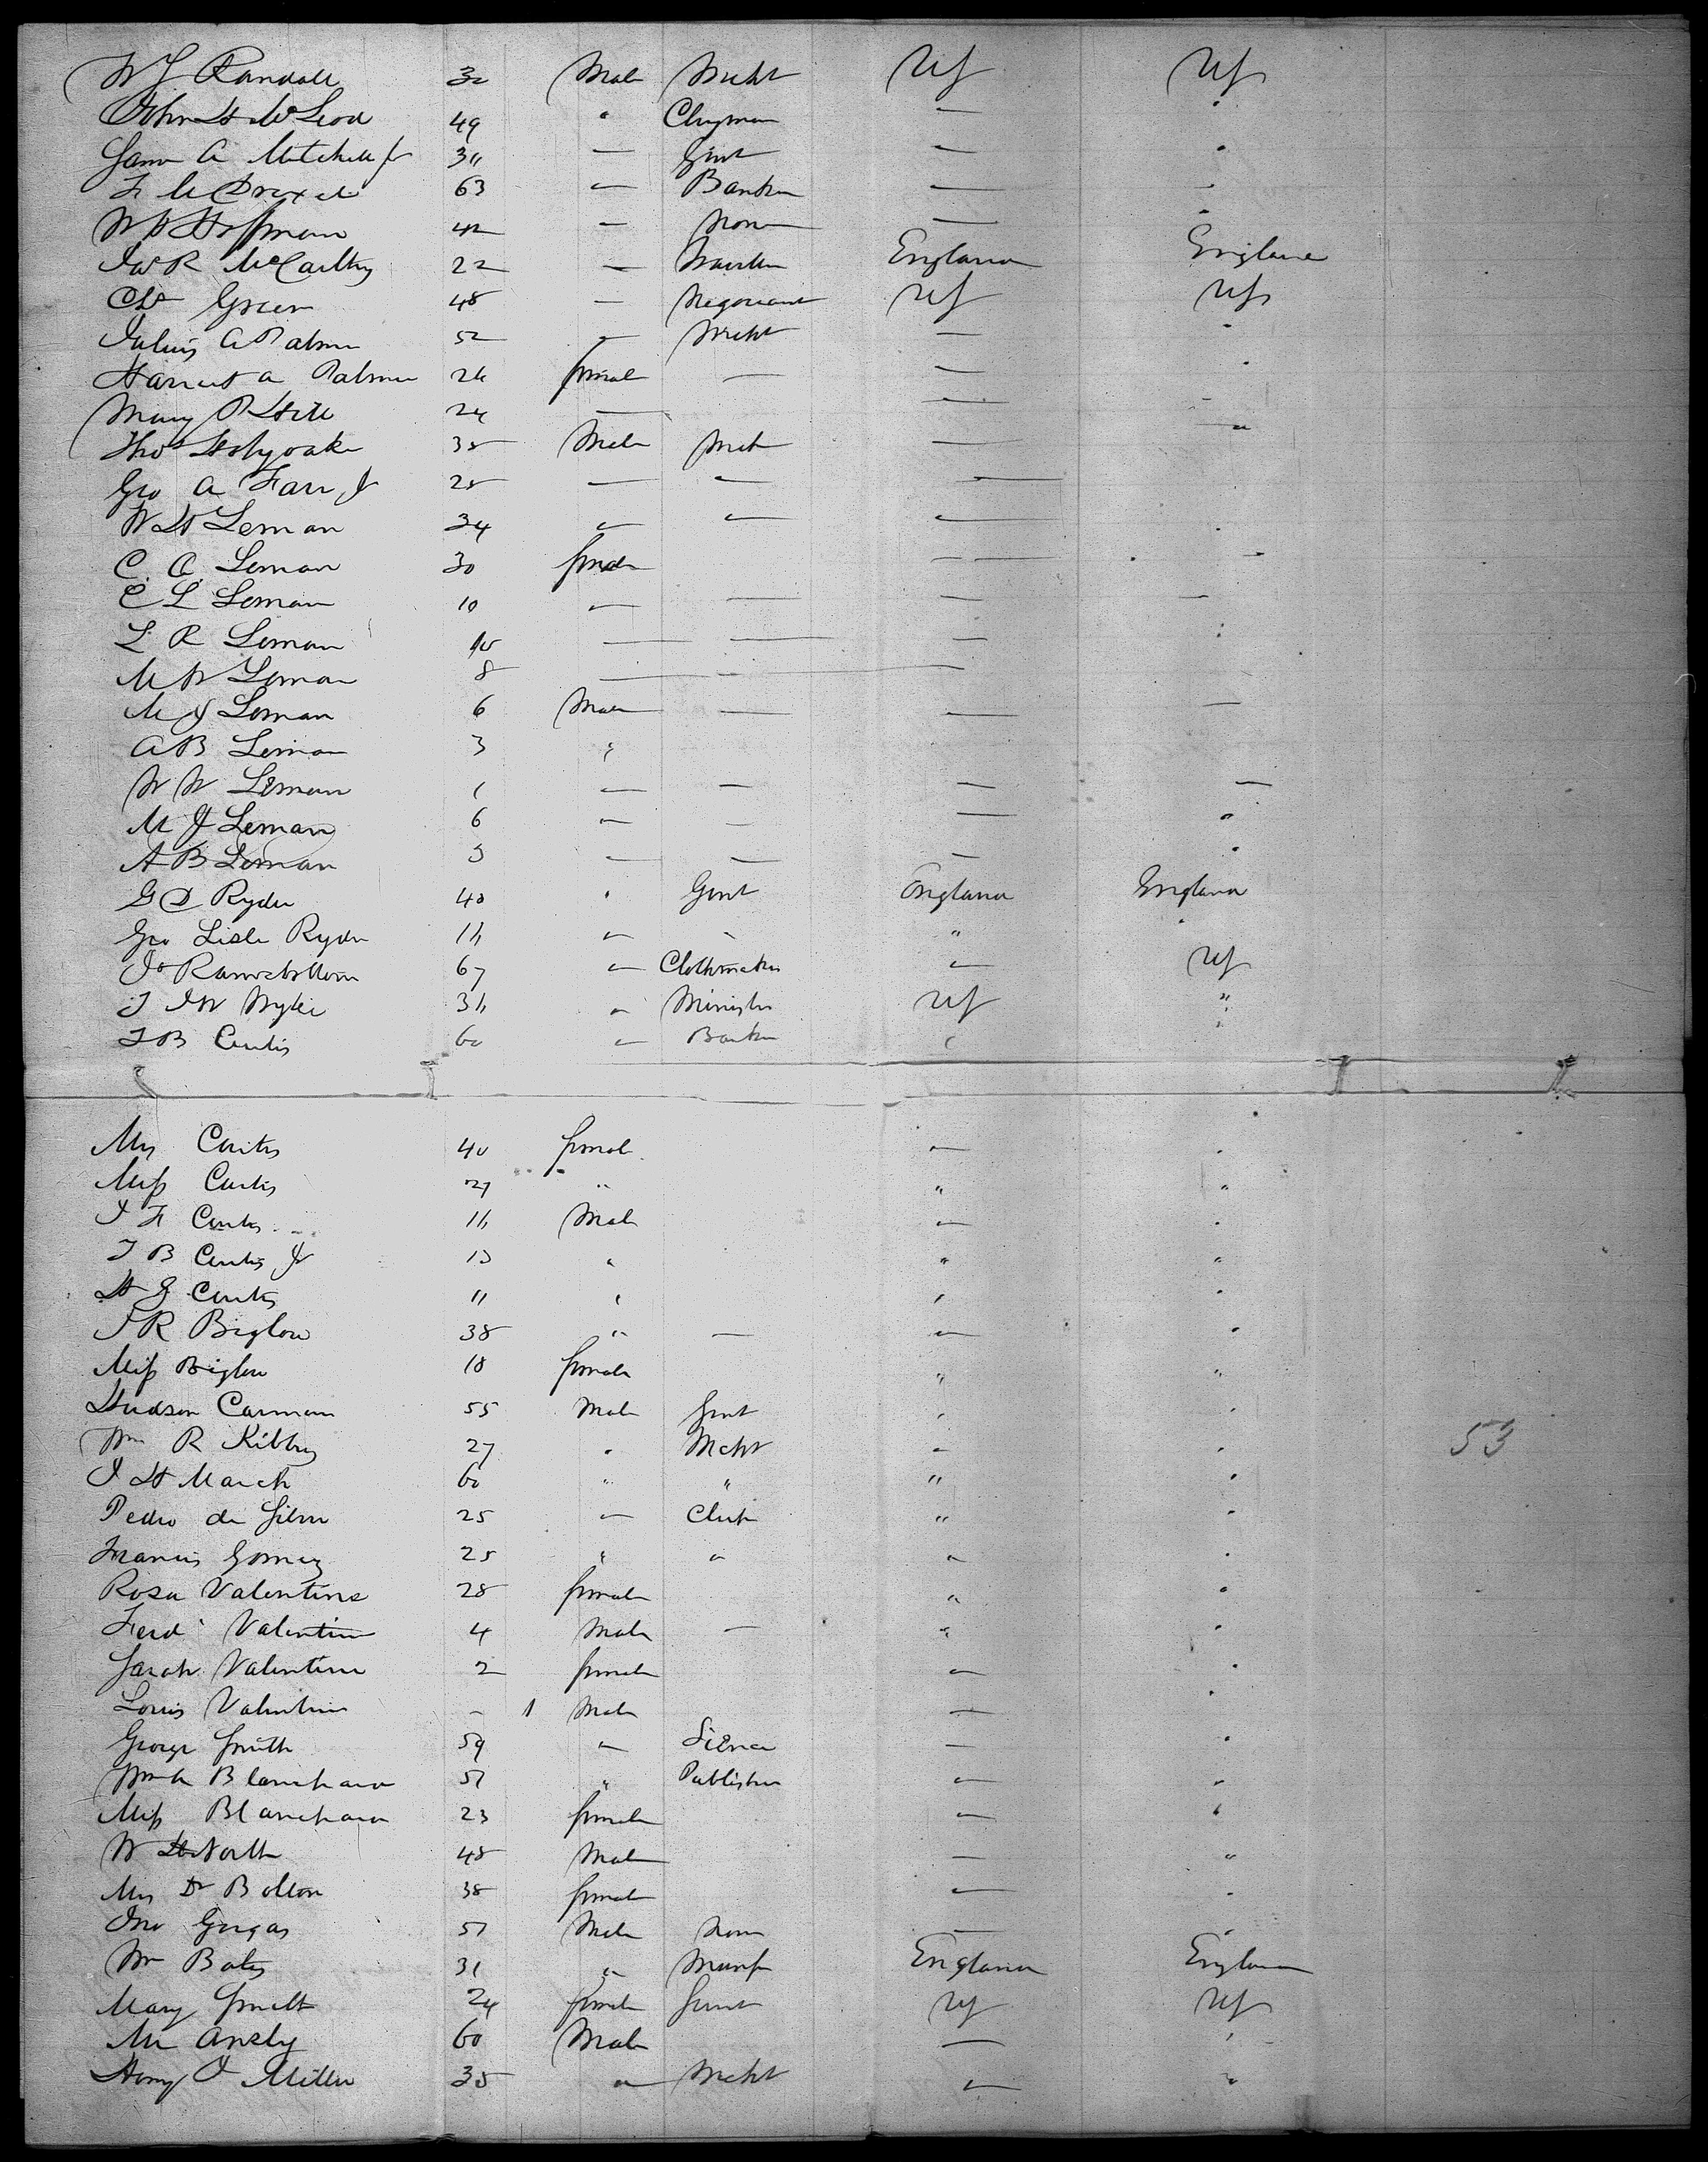 W J Randall 32 Male Mcht US US
John H McLeod 49 " Clergman — "
James A Mitchell Jr 36 — Gent — "
F M Drexel 63 — Banker — "
W H Hoffman 42 — None — "
Jas R McCarthy 22 — England England
Chs Green 48 — Negociant US US
Julius A Palmer 52 — Mcht — "
Harriet A Palmer 26 female — — "
Mary P Hill 24 — — "
Thos Holyoake 35 Male Mcht — "
Geo A Farr Jr 25 — — —
W H Leman 34 " " — "
C. A. Leman 30 female — "
E L Leman 10 " — — —
L R Leman — — — "
M W Leman 8 — —
M J Leman 6 Male — — —
A B Leman 3 "
W W Leman 1 — — — —
M J Leman 6 — — — "
A B Leman 3 — — — "
G D Ryder 40 " Gent England England
Geo Lisle Ryder 16 " " " "
Js Ramsbottom 67 " Clothmaker " US
36 " Minister US "
T B Curtis 60 " Banker "  "
Mrs Curtis 40 female — "
Miss Curtis 27 " " "
J F Curtis 16 Male " "
T B Curtis Jr 13 " " "
H G Curtis 11 " " "
J R Biglow 38 " — " "
Miss Biglow 18 female " "
Hudson Carman 55 Male Gent " "
Wm R Kibby 27 " Mcht " " 53
J H March 60 " " " "
Pedro de Silva 25 " Clerk " "
Francis Gomez 25 " " " "
Rosa Valentine 28 female " "
Ferd Valentine 4 Male — " "
Sarah Valentine 2 female " "
Louis Valentine - 1 Male — "
George Smith 59 " — "
Wm A Blanchard 51 " Publisher " "
Miss Blanchard 23 female " "
W H North 48 Male — "
Mrs Dr Bolton 38 female " "
Jno Gorgas 57 Male None — "
Wm Bates 31 " Manfr England England
Mary Smith 24 female Servt US US
Mr Ansly 60 Male — "
Henry J Miller 35 " Mcht " "